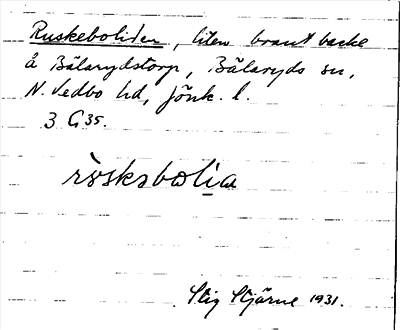 Ruskeboliden, liten brant backe
å Bälarydstorp, Bälaryds sn,
N. Vedbo hd, Jönk. l.
3 G 35.
rùsksbωli̲a
Stig Stjärne 1931.